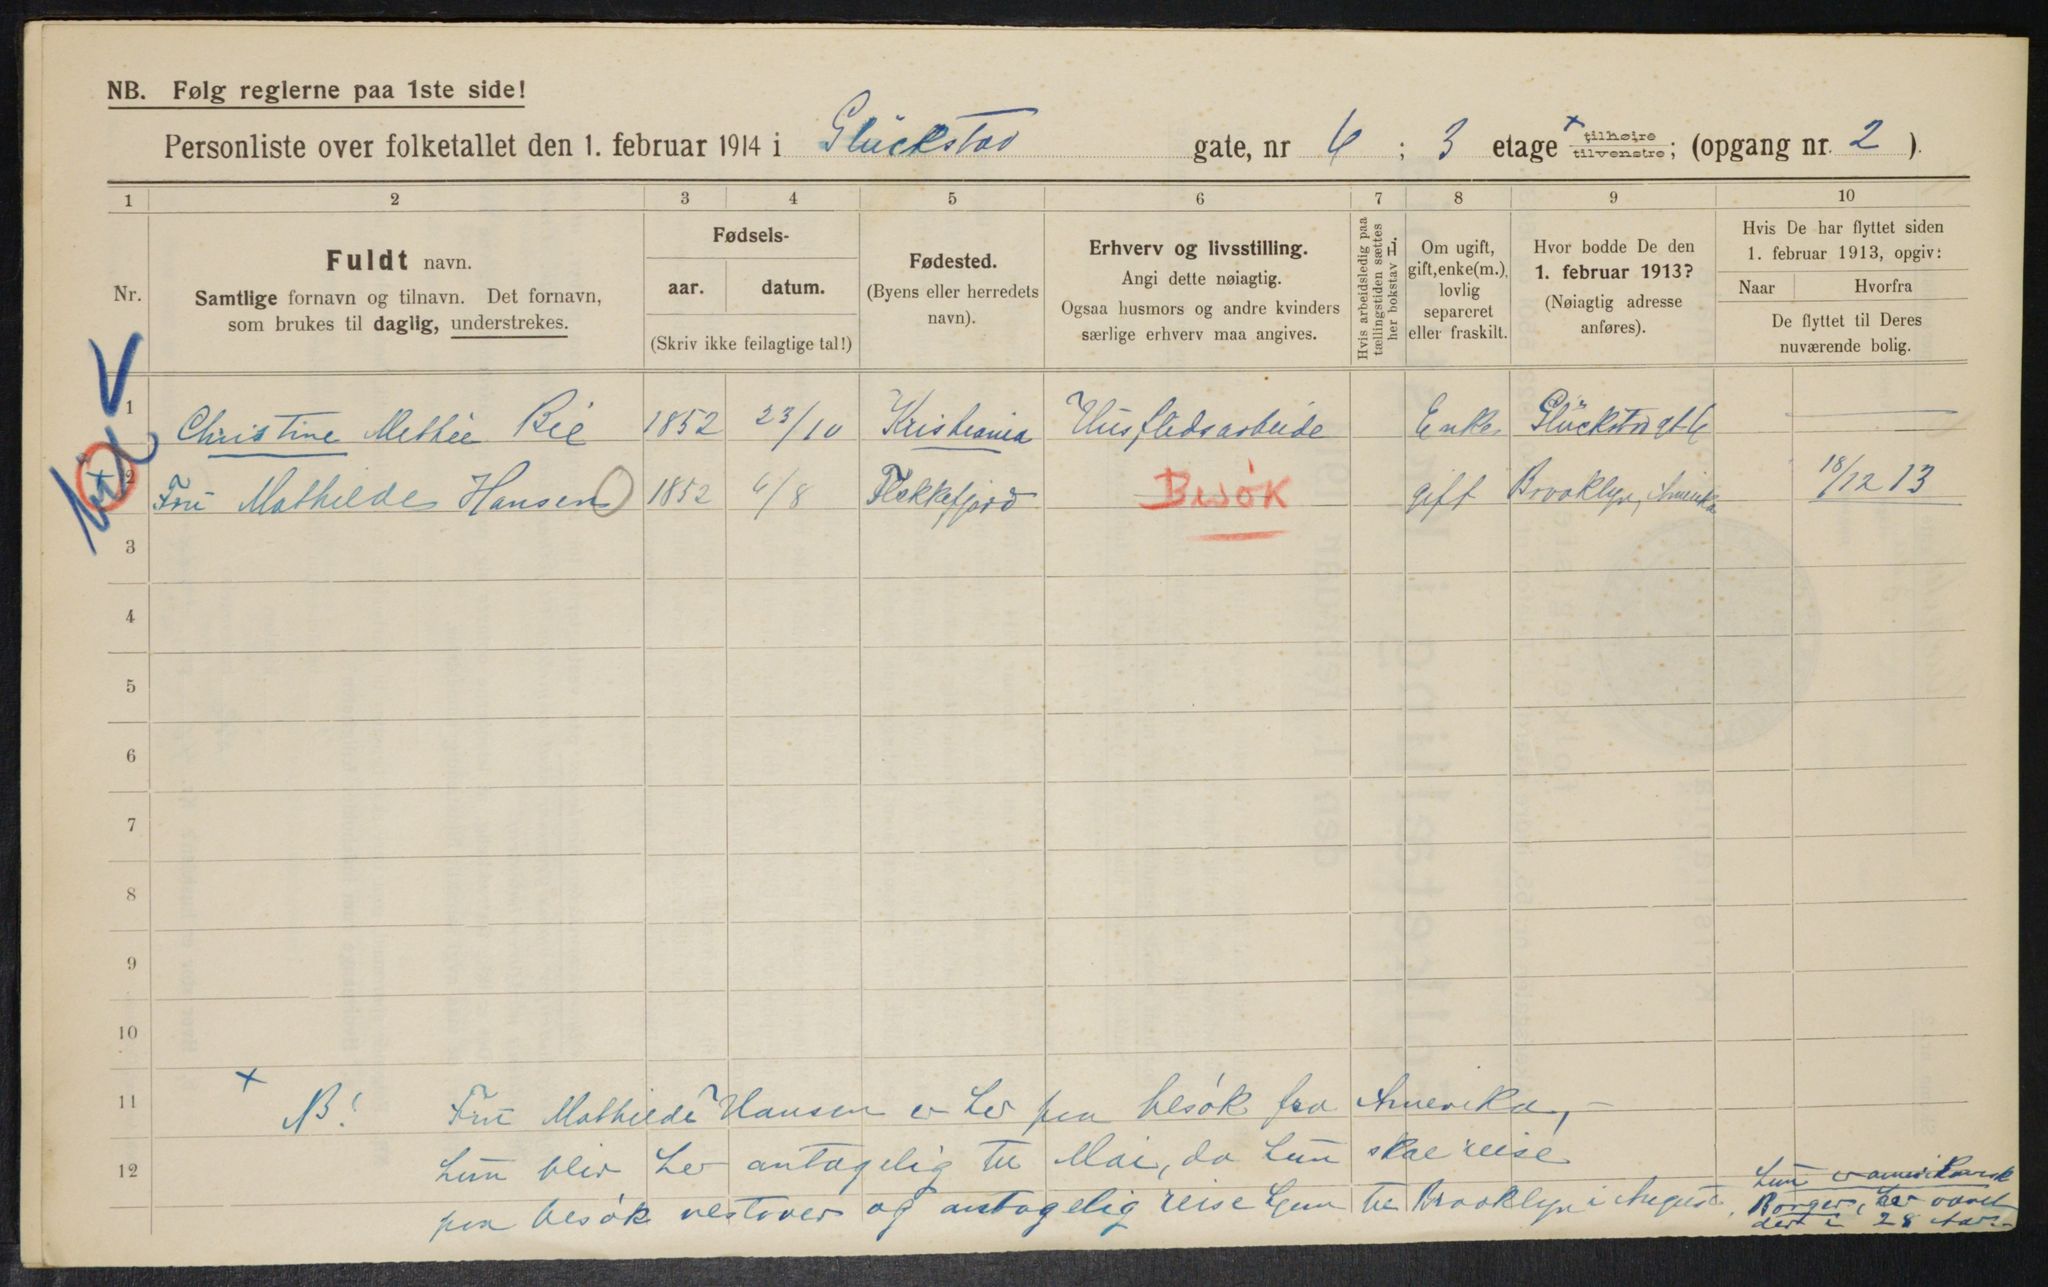 NB. Følg reglerne paa 1ste side!
Personliste over folketallet den 1. februar 1914 i Glückstad gate, nr 6 ; 3 etage × tilhøire tilvenstre; (opgang nr. 2 ).
1 2 3 4 5 6 7 8 9 10
Nr.
Fuldt navn.
Samtlige fornavn og tilnavn. Det fornavn,
som brukes til daglig, understrekes.
Fødsels-
aar. datum.
(Skriv ikke feilagtige tal!)
Fødested.
(Byens eller herredets
navn).
Erhverv og livsstilling.
Angi dette nøiagtig.
Ogsaa husmors og andre kvinders
særlige erhverv maa angives.
Hvis arbeidsledig paa
tællingstiden sættes
her bokstav L.
Om ugift,
gift, enke(m.),
lovlig
separeret
eller fraskilt.
Hvor bodde De den
1. februar 1913?
(Nøiagtig adresse
anføres).
Hvis De har flyttet siden
1. februar 1913, opgiv:
Naar Hvorfra
De flyttet til Deres
nuværende bolig.
1 Christine Bie 1852 23/10 Kristiania Husflidsarbeide Enke Glückstadgt 6
× 2 Fru Mathilde Hansen 1852 6/8 Flekkefjord Besøk gift Brooklyn, Amerika 18/12 13
3
4
5
6
7
8
9
10
11
12
× NB! Fru Mathilde Hansen er her paa besøk fra Amerika, –
hun blir her antagelig til Mai, da hun skal reise
paa besøk vestover og antagelig reise hjem til Brooklyn i August.
hun er amerikansk
Borger, har været
der i 28 Aar. –